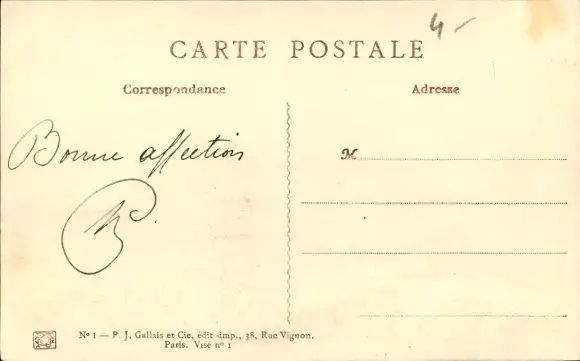 4 -
CARTE POSTALE
Correspondance
Adresse
Bonne affection
M
Nº 1 — P. J. Gallais et Cie, édit-imp., 38, Rue Vignon.
Paris. Visé nº 1